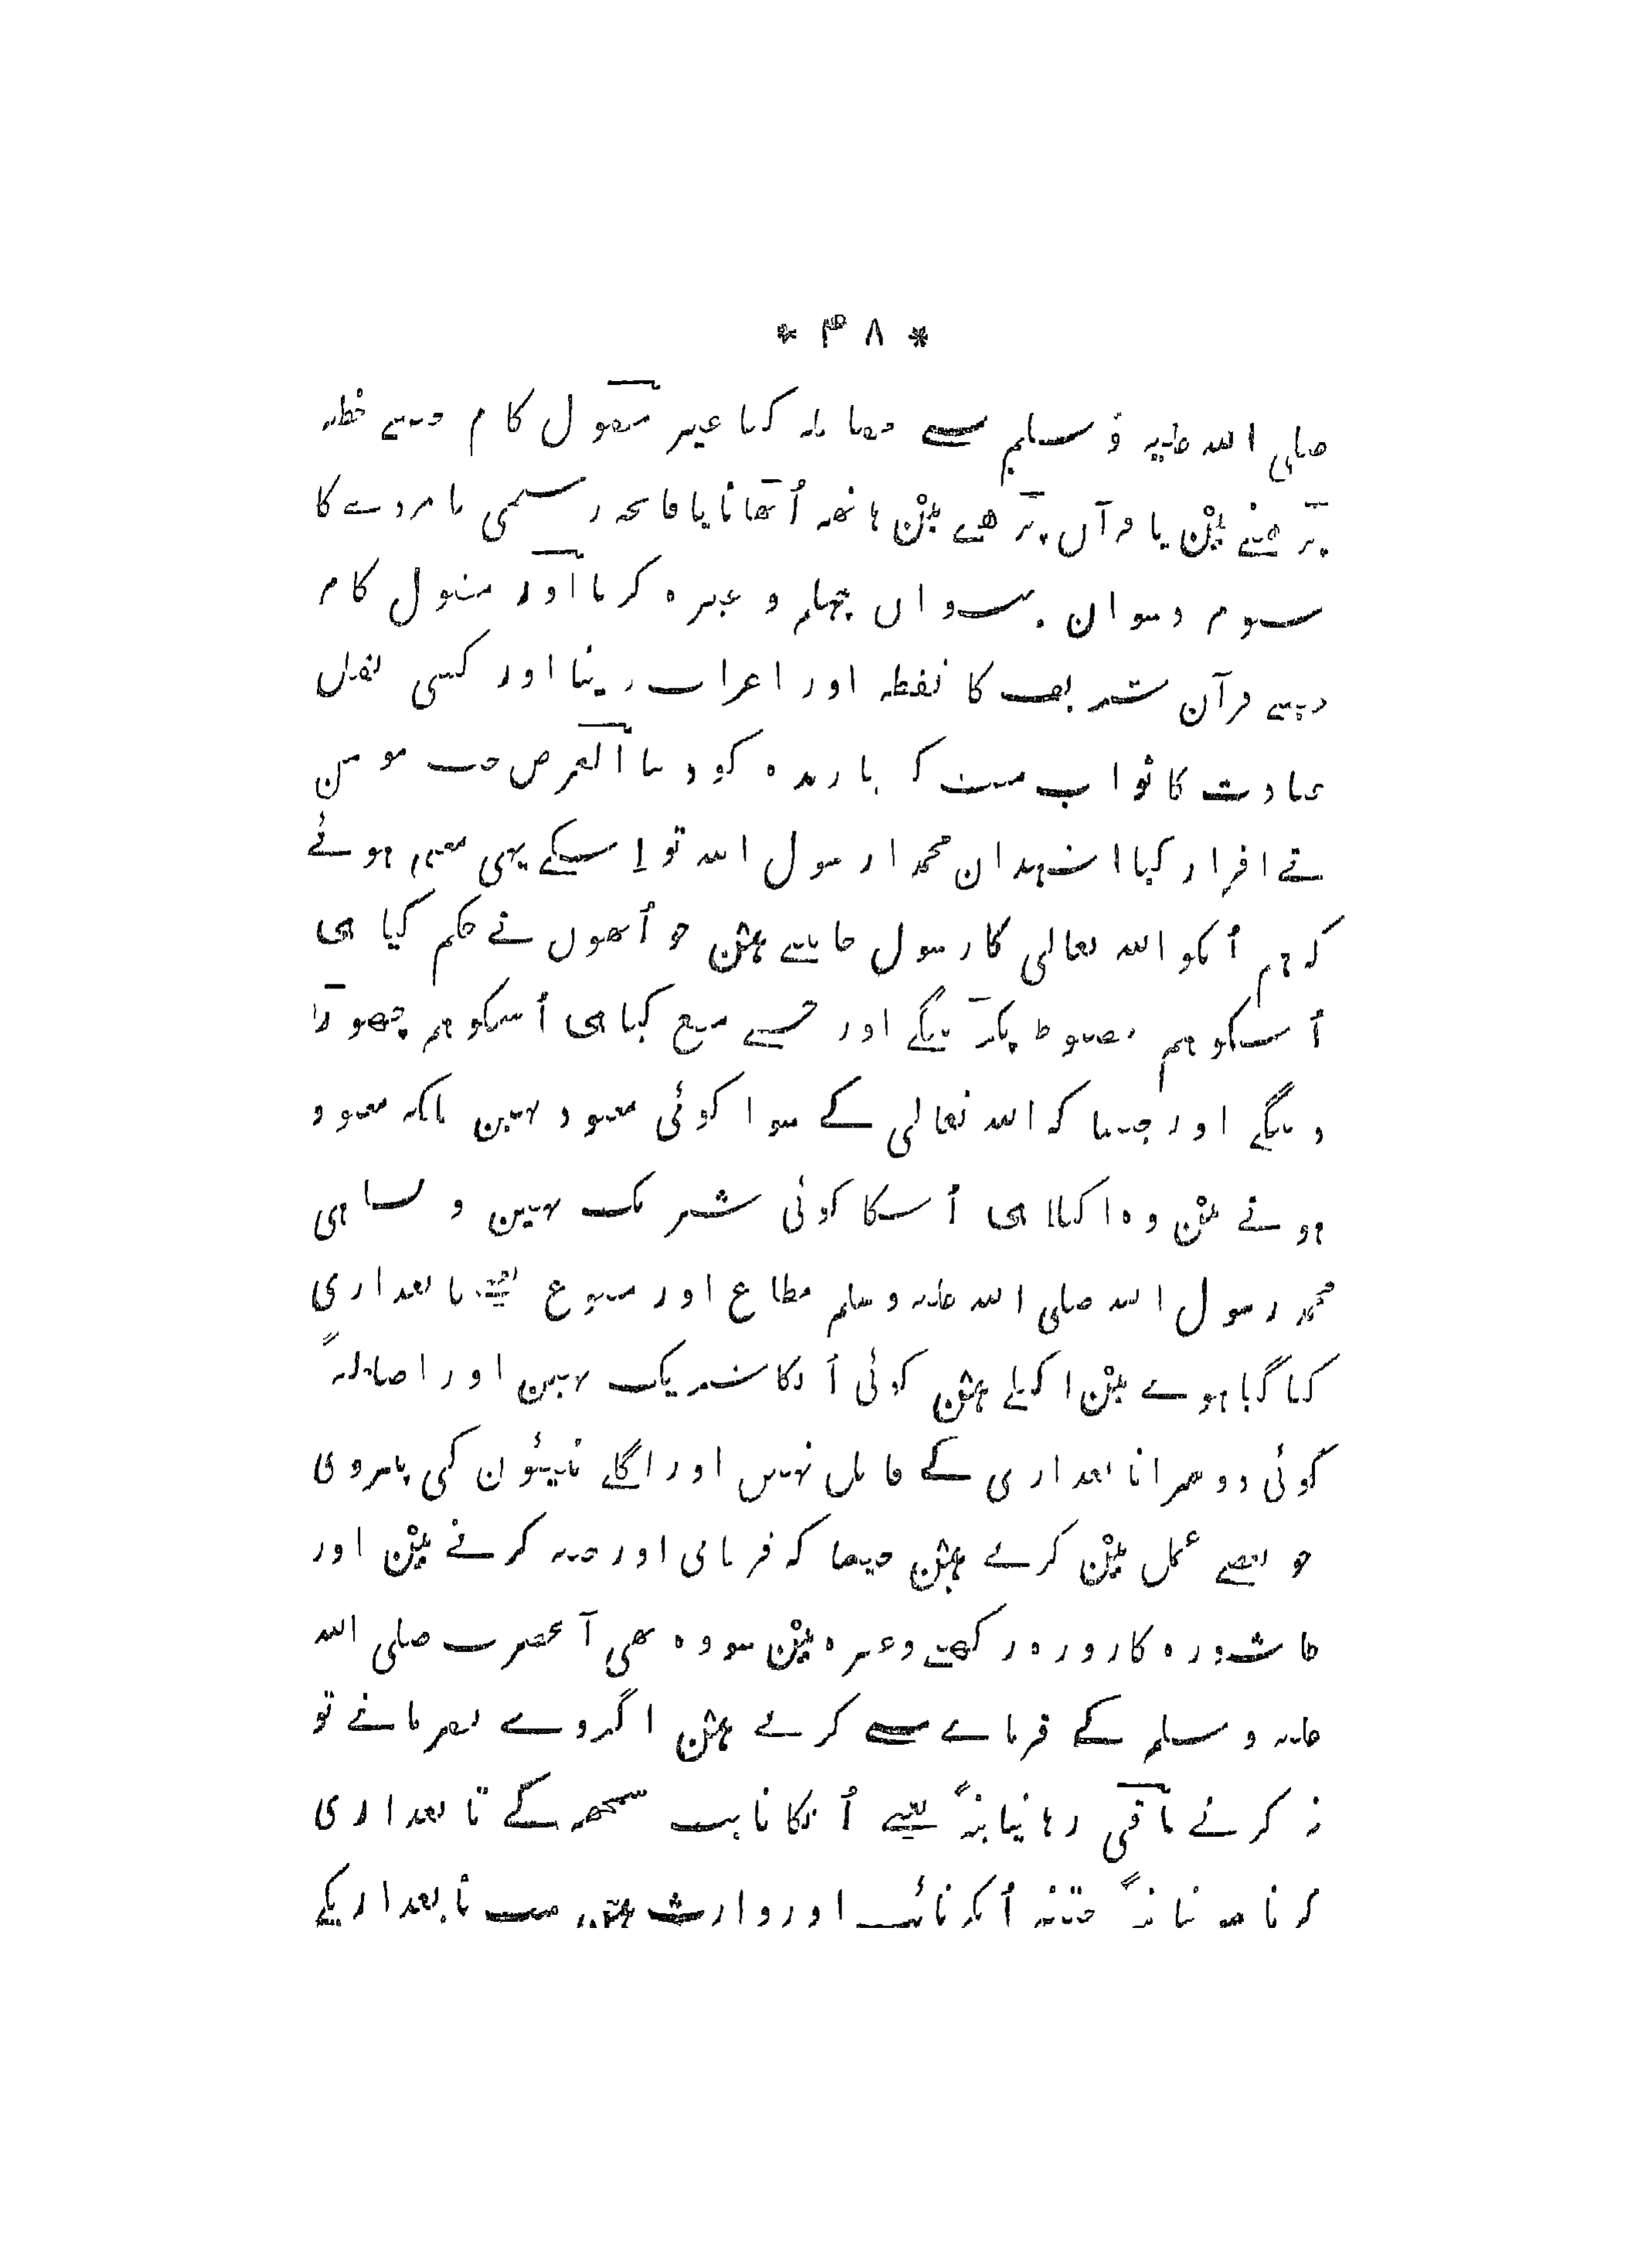 * ۴۸ *
صلی اللہ علیہ و سلم سے معاملہ کیا غیر مقبول کام جیسے خطبہ
پڑھنے میں یا قرآن پڑھنے میں ہاتھہ اُٹھانا یا فاتحہ رسمی یا مردے کا
سوم دسوان بیسواں چہلم و غیرہ کرنا اور مقبول کام
جیسے قرآن شریف کا نقطہ اور اعراب دینا اور کسی نفل
عبادت کا ثواب میت کو یا زندہ کو دینا الغرض جب مومن
نے اقرار کیا اشہد ان محمدا رسول اللہ تو اِسکے یہی معنی ہوئے
کہ ہم اُنکو اللہ تعالی کا رسول جانتے ہیں جو اُنھوں نے حکم کیا ہی
اُسکو ہم مضبوط پکڑینگے اور جسے منع کیا ہی اُسکو ہم چھوڑ
دینگے اور جیسا کہ اللہ تعالی کے سوا کوئی معبود نہین بلکہ معبود
ہونے میں وہ اکیلا ہی اُسکا کوئی شریک نہین ویسا ہی
محمد رسول اللہ صلی اللہ علیہ و سلم مطاع اور متبوع یعنے تابعداری
کیا گیا ہونے میں اکیلے ہیں کوئی اُنکا شریک نہین اور اصالۃً
کوئی دوسرا تابعداری کے قابل نہیں اور اگلے نبیئون کی پیروی
جو بعضے عمل میں کرتے ہیں جیسا کہ قربانی اور ختنہ کرنے میں اور
عاشورہ کا روزہ رکھنے وغیرہ میں سو وہ بھی آنحضرت صلی اللہ
علیہ و سلم کے فرمانے سے کرتے ہیں اگر وے نفرماتے تو
نہ کرتے باقی رہا نیابۃً یعنے اُنکا نایب سمجھہ کے تابعداری
کرنا سو نیابۃً جتنے اُنکے نائب اور وارث ہیں سب تابعداریکے